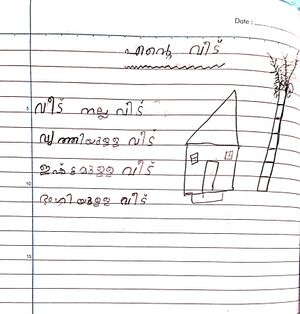 Date :
എന്റെ വീട്
5 വീട് നല്ല വീട്
വൃത്തിയുള്ള വീട്
10 ഇഷ്ടമുള്ള വീട്
ഭംഗിയുള്ള വീട്
15